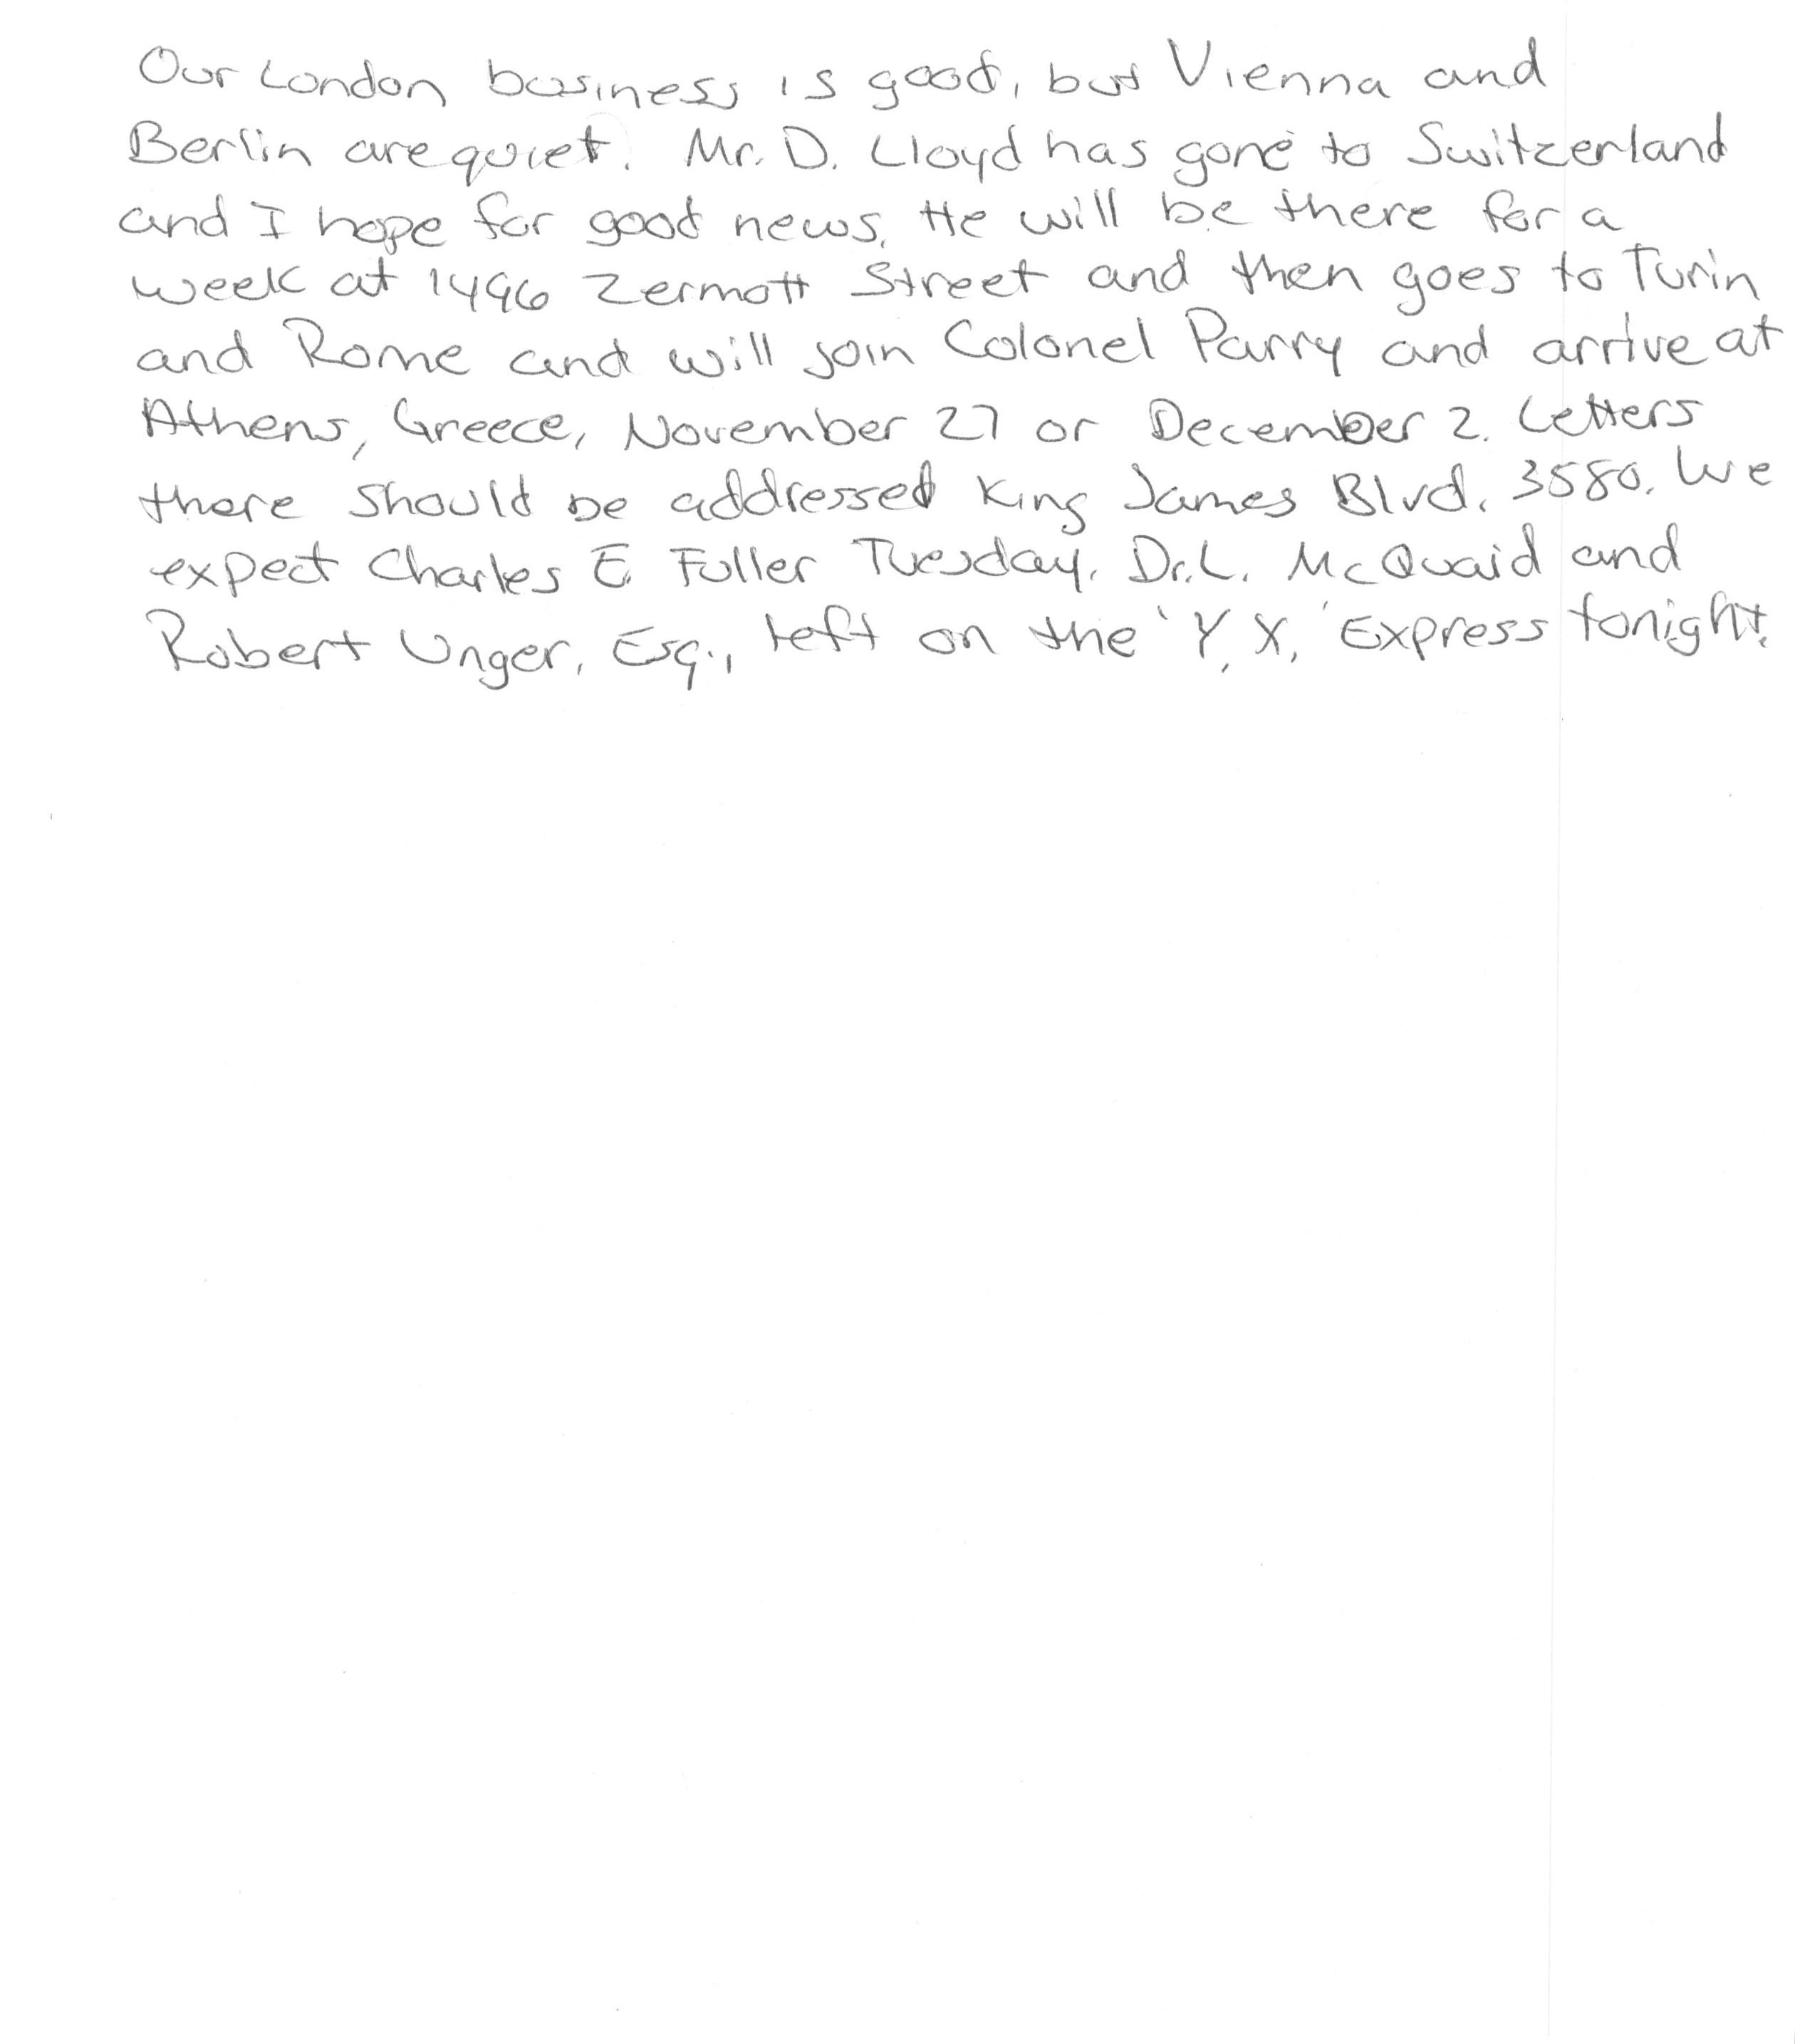 Our London business is good, but Vienna and
Berlin are quiet. Mr. D. Lloyd has gone to Switzerland
and I hope for good news. He will be there for a
week at 1496 Zermott Street and then goes to Turin
and Rome and will join Colonel Parry and arrive at
Athens, Greece, November 27 or December 2. Letters
there should be addressed King James Blvd. 3580. We
expect Charles E. Fuller Tuesday. Dr. L. McQuaid and
Robert Unger, Esq., left on the 'Y. X.' Express tonight.